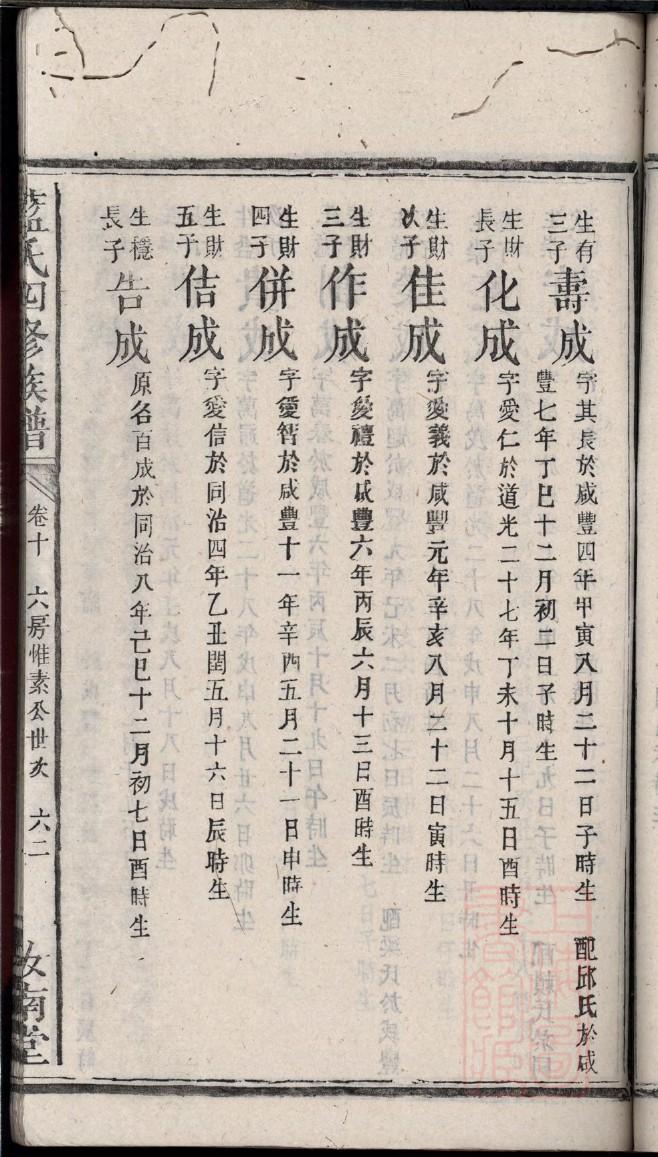 生有三子壽成字其長於咸豐四年甲寅八月二十二日子時生 配邱氏於咸
豐七年丁巳十二月初三日子時生
生財長子化成字愛仁於道光二十七年丁未十月十五日酉時生
生財次子佳成字愛義於咸豐元年辛亥八月二十二日寅時生
生財三子作成字愛禮於咸豐六年丙辰六月十三日酉時生
生財四子併成字愛智於咸豐十一年辛酉五月二十一日申時生
生財五子佶成字愛信於同治四年乙丑閏五月十六日辰時生
生穩長子告成原名百成於同治八年己巳十二月初七日酉時生
藍氏四修族譜 卷十 六房惟素公世次 六二 汝南堂